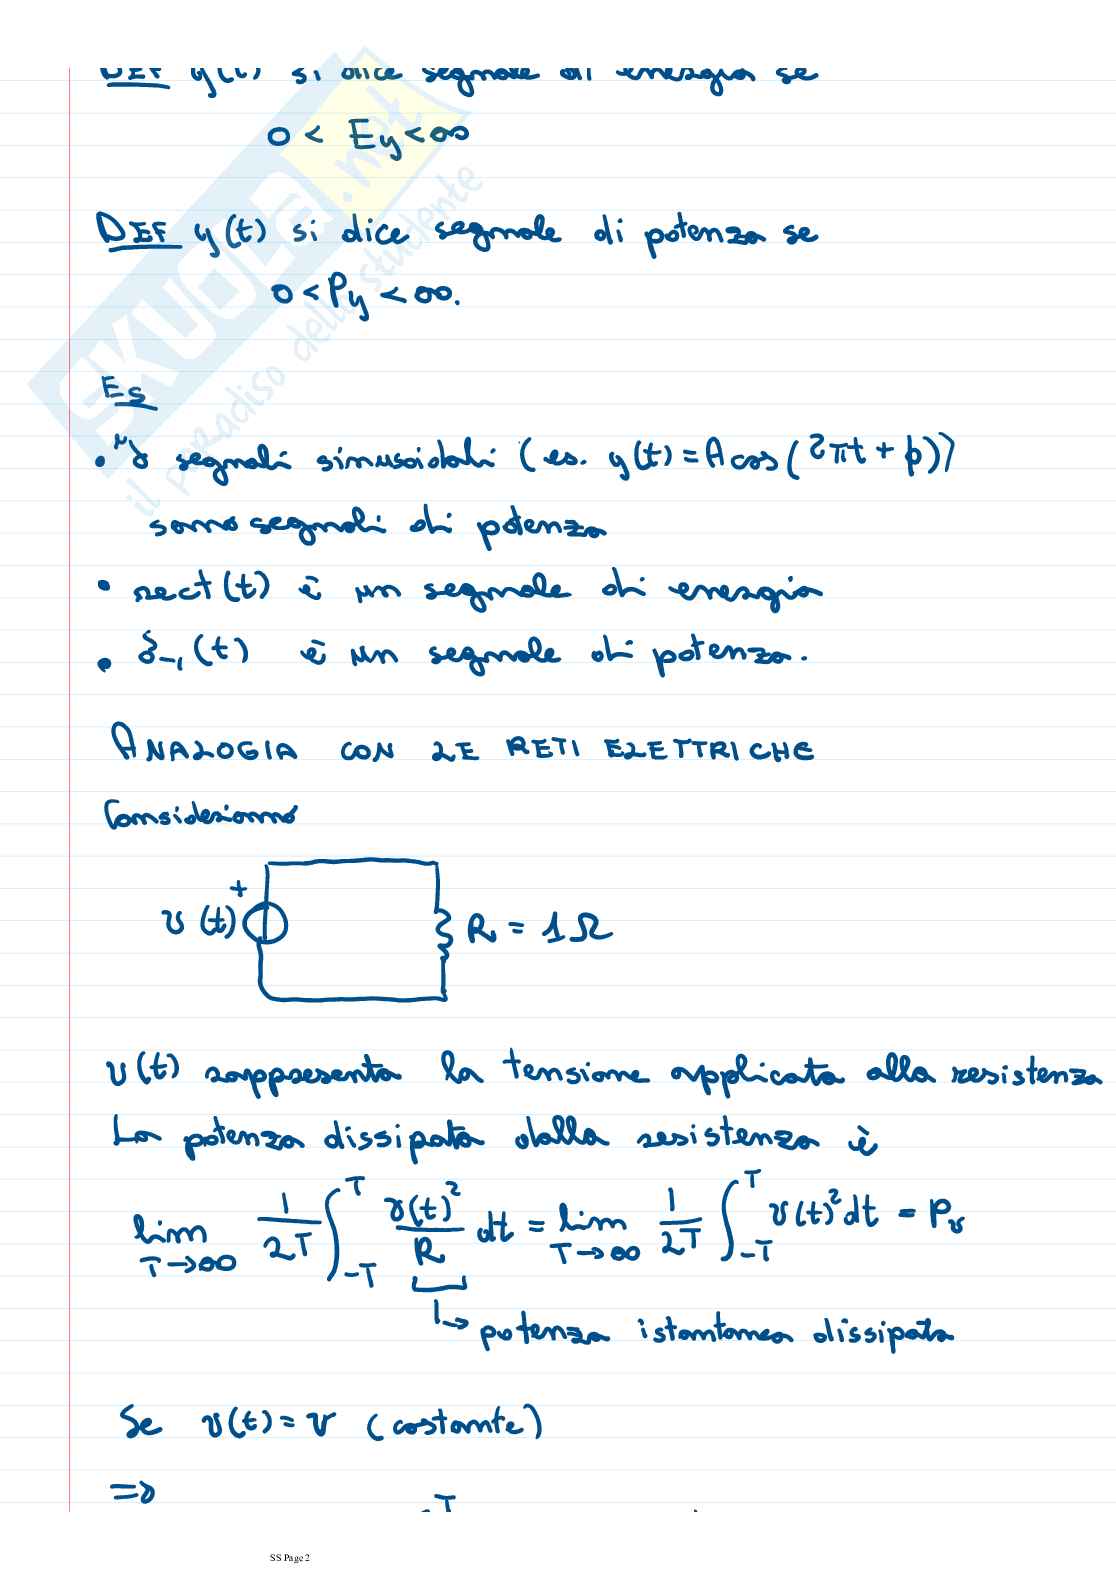 DEF y(t) si dice segnale di energia se
0 < Ey < ∞
DEF y(t) si dice segnale di potenza se
0 < Py < ∞.
Es
• segnali sinusoidali (es. y(t) = A cos(2πt + φ))
sono segnali di potenza
• rect(t) è un segnale di energia
• δ₋₁(t) è un segnale di potenza.
ANALOGIA CON LE RETI ELETTRICHE
Consideriamo
+
v(t) R = 1Ω
v(t) rappresenta la tensione applicata alla resistenza
La potenza dissipata dalla resistenza è
lim T→∞ 1/2T ∫_{-T}^{T} v(t)²/R dt = lim T→∞ 1/2T ∫_{-T}^{T} v(t)² dt = Pv
↳ potenza istantanea dissipata
Se v(t) = v (costante)
⇒
T
SKUOLA.net
il paradiso dello studente
SS Page 2